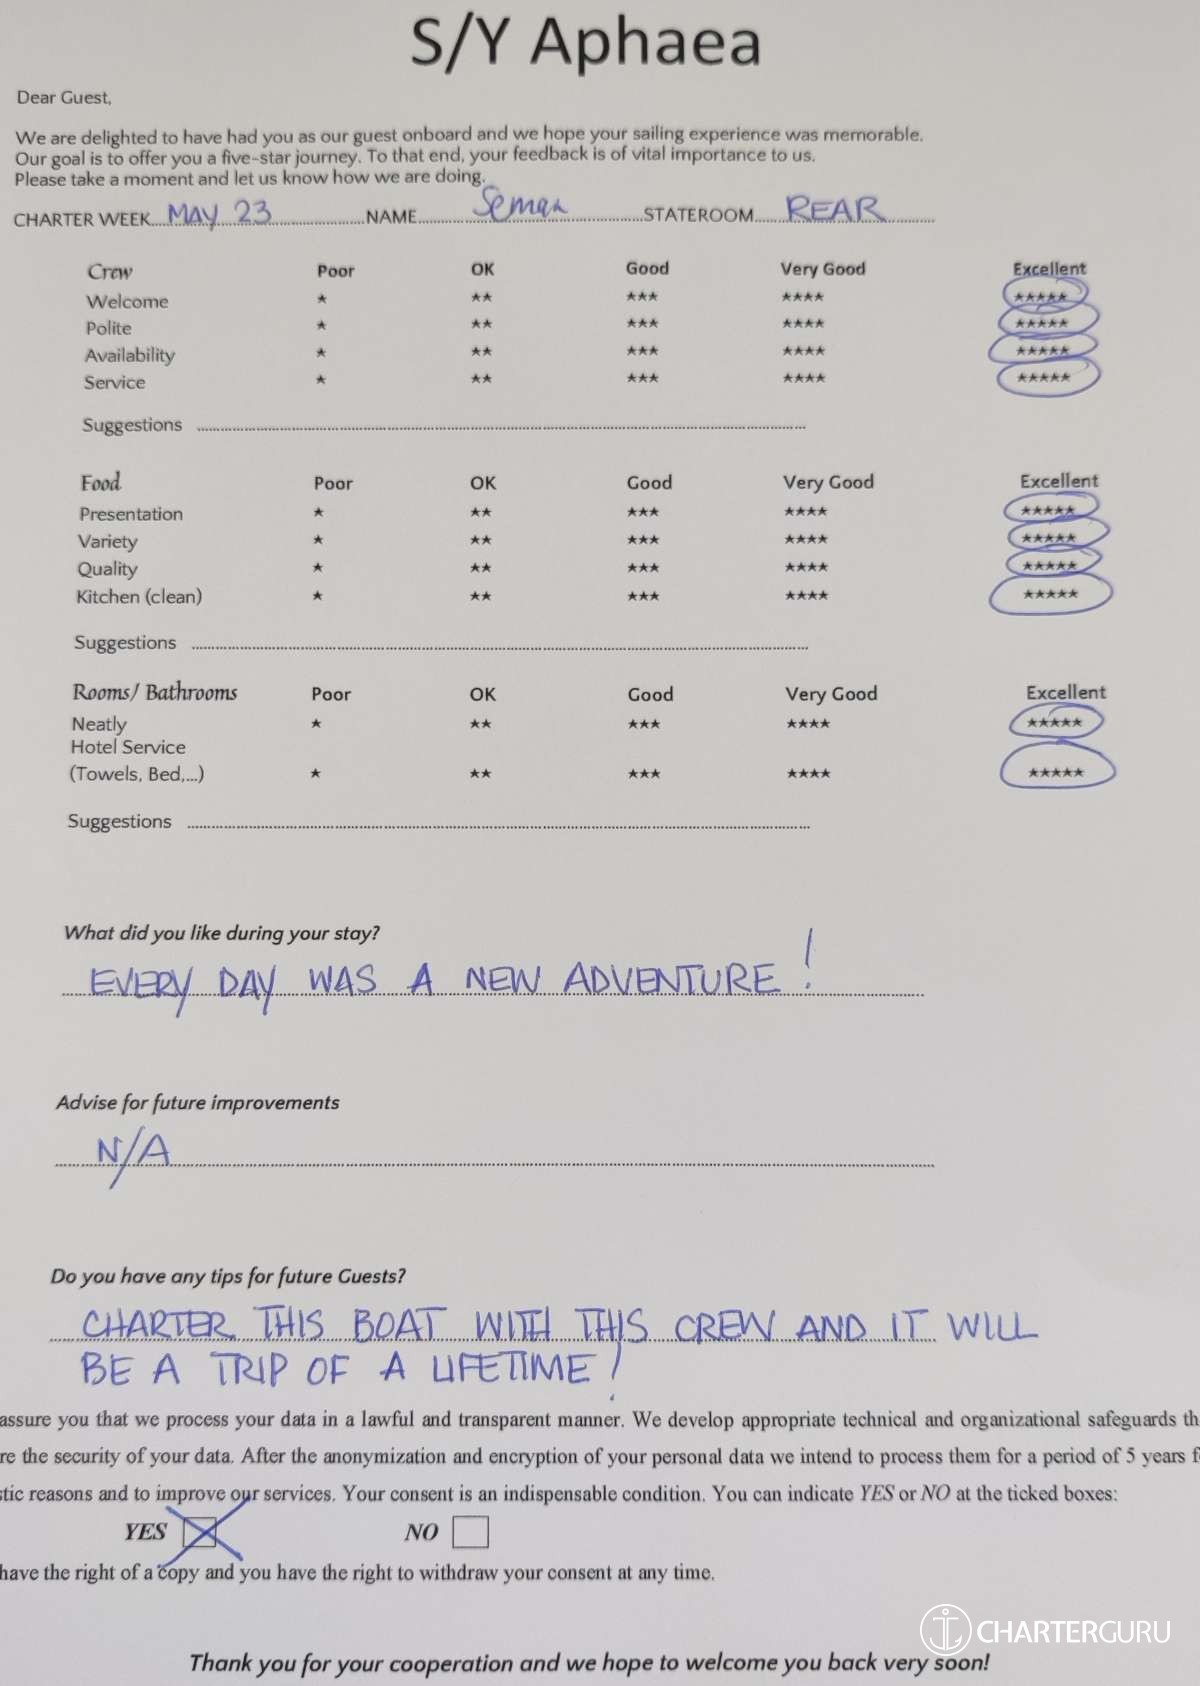 S/Y Aphaea
Dear Guest,
We are delighted to have had you as our guest onboard and we hope your sailing experience was memorable.
Our goal is to offer you a five-star journey. To that end, your feedback is of vital importance to us.
Please take a moment and let us know how we are doing.
CHARTER WEEK MAY 23 NAME Seman STATEROOM REAR
Crew Poor OK Good Very Good Excellent
Welcome ★ ★★ ★★★ ★★★★ ★★★★★
Polite ★ ★★ ★★★ ★★★★ ★★★★★
Availability ★ ★★ ★★★ ★★★★ ★★★★★
Service ★ ★★ ★★★ ★★★★ ★★★★★
Suggestions
Food Poor OK Good Very Good Excellent
Presentation ★ ★★ ★★★ ★★★★ ★★★★★
Variety ★ ★★ ★★★ ★★★★ ★★★★★
Quality ★ ★★ ★★★ ★★★★ ★★★★★
Kitchen (clean) ★ ★★ ★★★ ★★★★ ★★★★★
Suggestions
Rooms/ Bathrooms Poor OK Good Very Good Excellent
Neatly ★ ★★ ★★★ ★★★★ ★★★★★
Hotel Service
(Towels, Bed,...) ★ ★★ ★★★ ★★★★ ★★★★★
Suggestions
What did you like during your stay?
EVERY DAY WAS A NEW ADVENTURE!
Advise for future improvements
N/A
Do you have any tips for future Guests?
CHARTER THIS BOAT WITH THIS CREW AND IT WILL
BE A TRIP OF A LIFETIME!
assure you that we process your data in a lawful and transparent manner. We develop appropriate technical and organizational safeguards th
re the security of your data. After the anonymization and encryption of your personal data we intend to process them for a period of 5 years f
stic reasons and to improve our services. Your consent is an indispensable condition. You can indicate YES or NO at the ticked boxes:
YES NO
have the right of a copy and you have the right to withdraw your consent at any time.
CHARTERGURU
Thank you for your cooperation and we hope to welcome you back very soon!